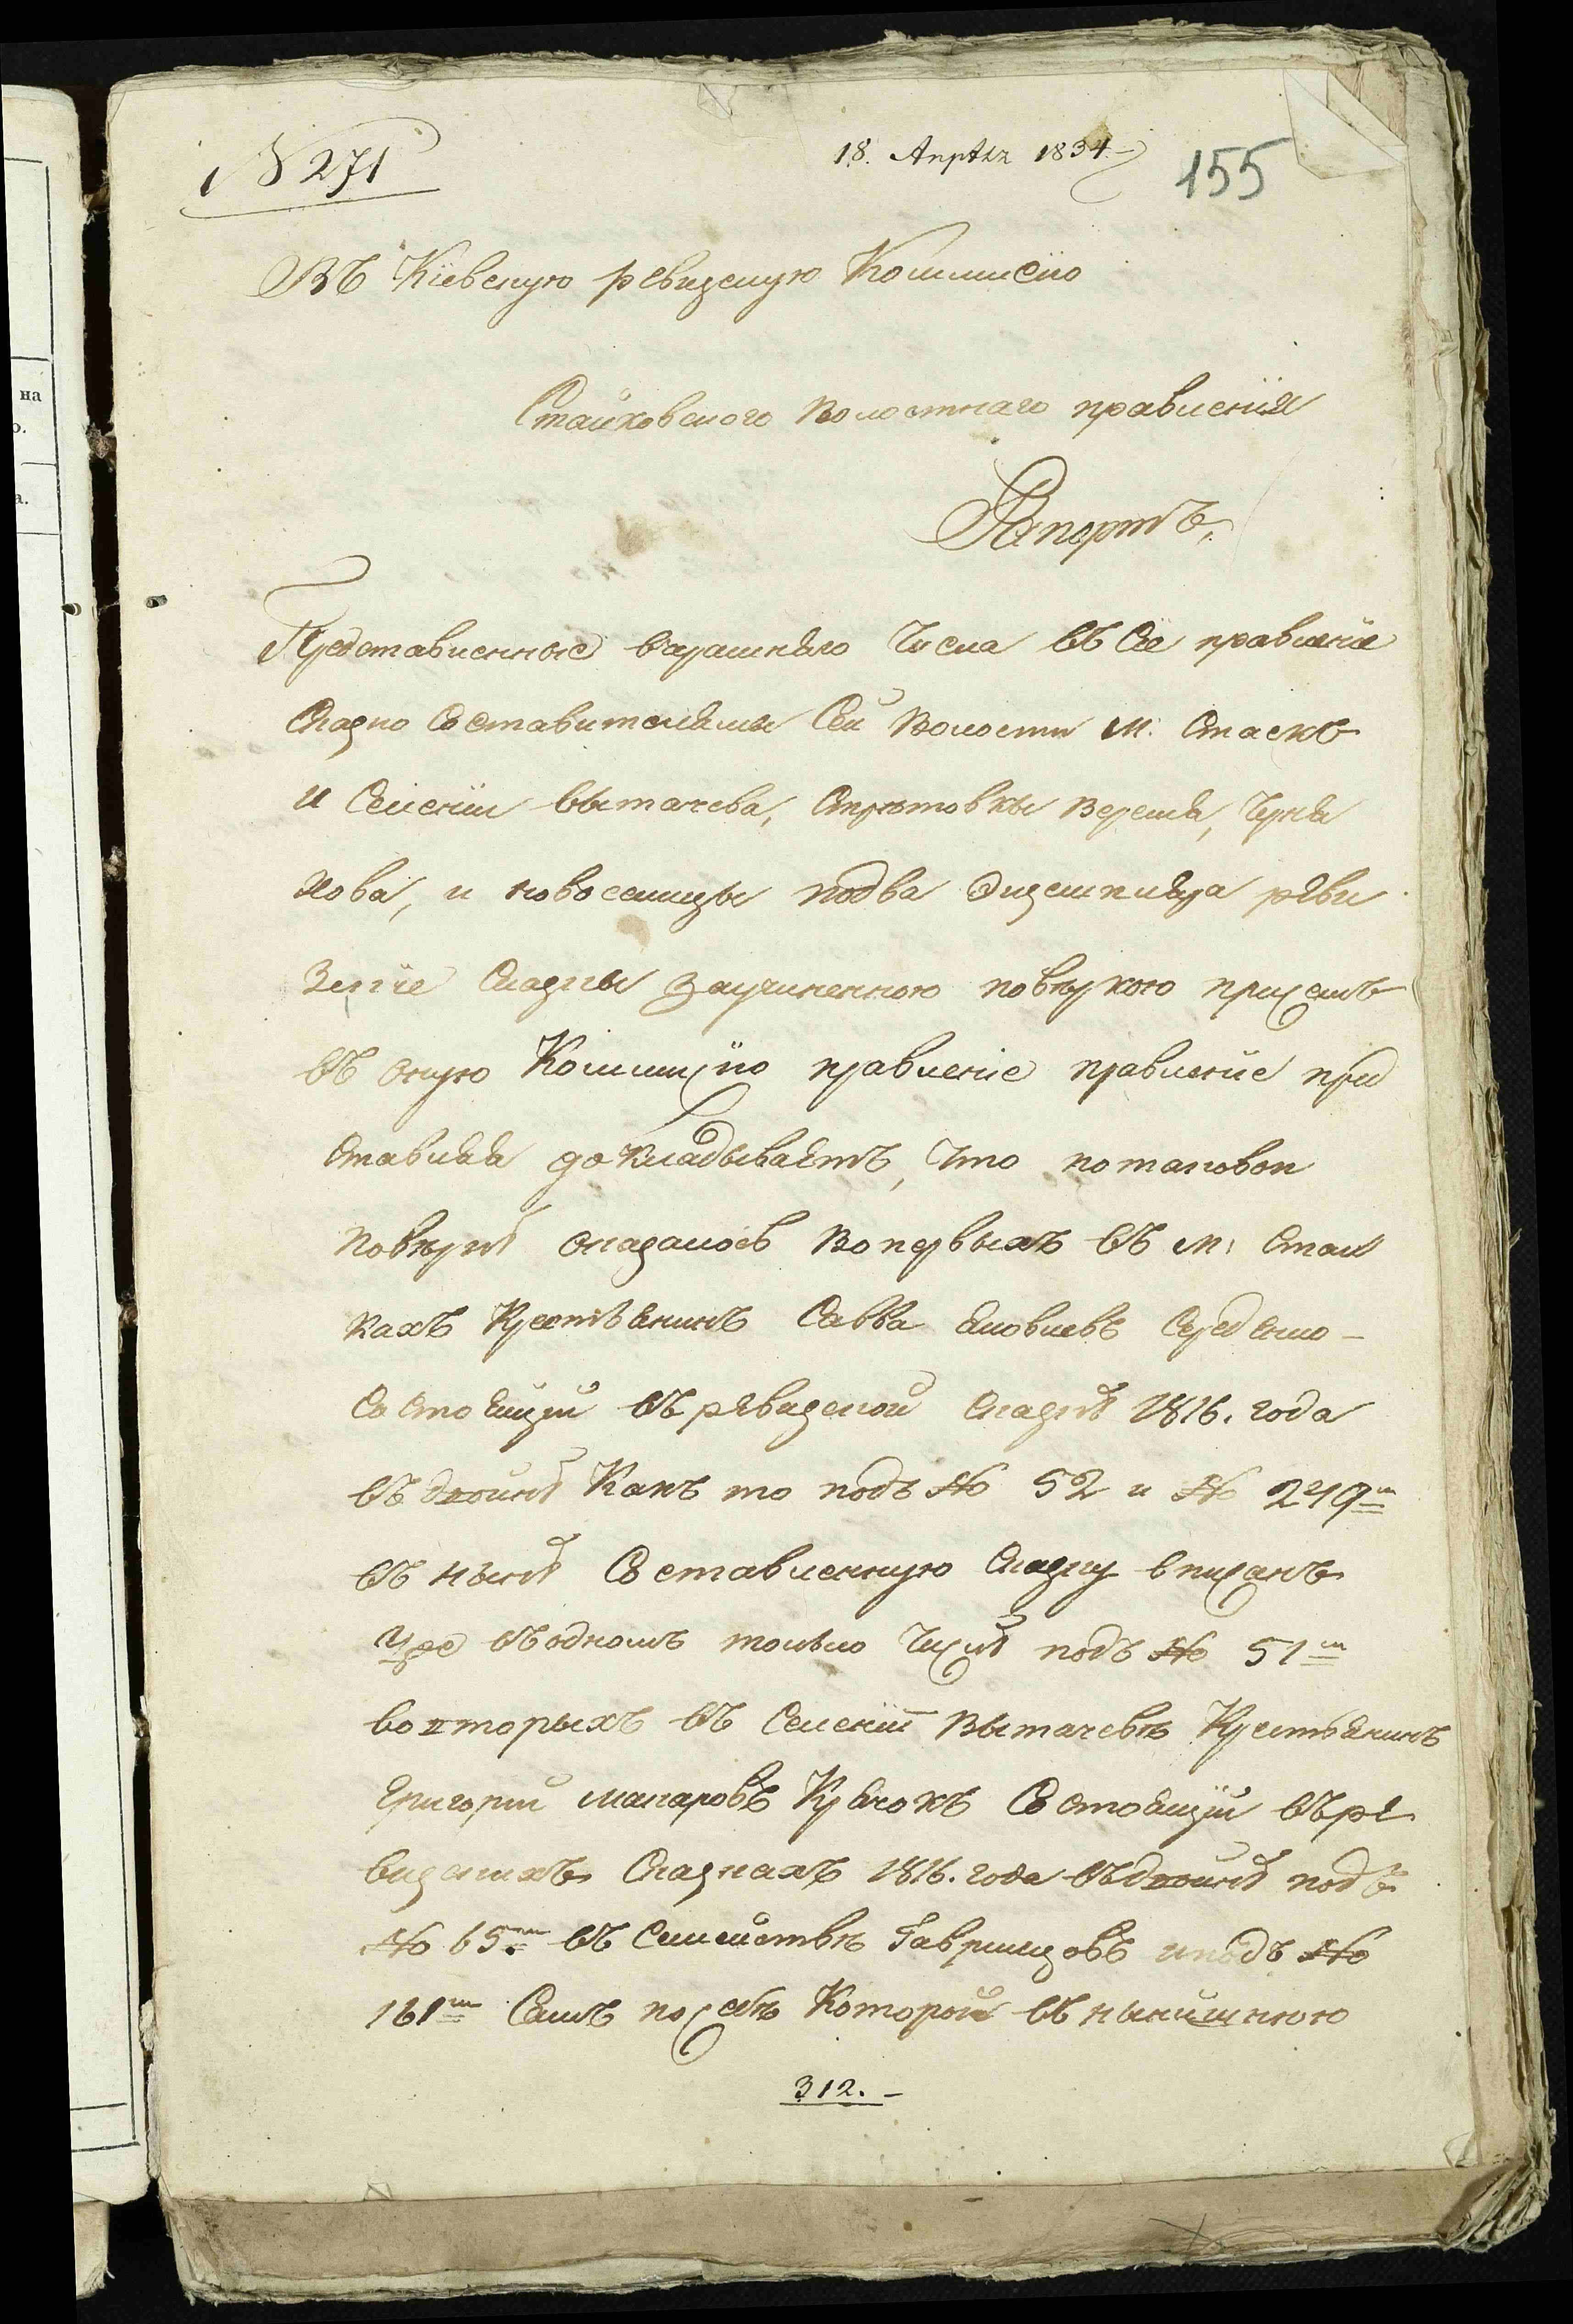 № 271
18. Апрѣля 1834.
155
Въ Кіевскую ревизскую Коммисію
Стайковского Волостнаго правленія
Рапортъ,
Представленные вчерашняго Числа въ Сіе правленіе
Сказко Составителямы Сей Волости м. Стаекъ
и Селеніи вытачева, Стрѣтовкы Веремя, Черня
хова, и новоселицы подва Экземпляра реви
Зскіе Сказкы Заучиненною повѣркою при семъ
въ оную Коммисію правленіе правленіе пред
ставляя докладываетъ, Что потаковои
Повѣрке оказалось Во первыхъ въ м. Стаи
кахъ Крестьянинъ Савва яковлевъ Середенко
Состоящій въ ревизской Сказке 1816. года
въ двоине Какъ то подъ № 52 и № 249м
въ ныне Составленную Сказку вписанъ
уже въ одномъ толко Числе подъ № 51м
вовторыхъ въ Селеніи Вытачевѣ Крестьянинъ
Григорій макаровъ Крячокъ Состоящій въ ре
визскихъ Сказкахъ 1816. года въ двоине подъ
№ 65.м въ Семействѣ Гаврилцовъ и подъ №
161м Самъ по себѣ Которой въ нынишнюю
312.
на
о.
а.